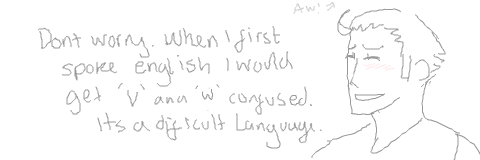 Aw!
Dont worry. When I first
spoke english I would
get 'v' and 'w' confused.
Its a dificult Language.